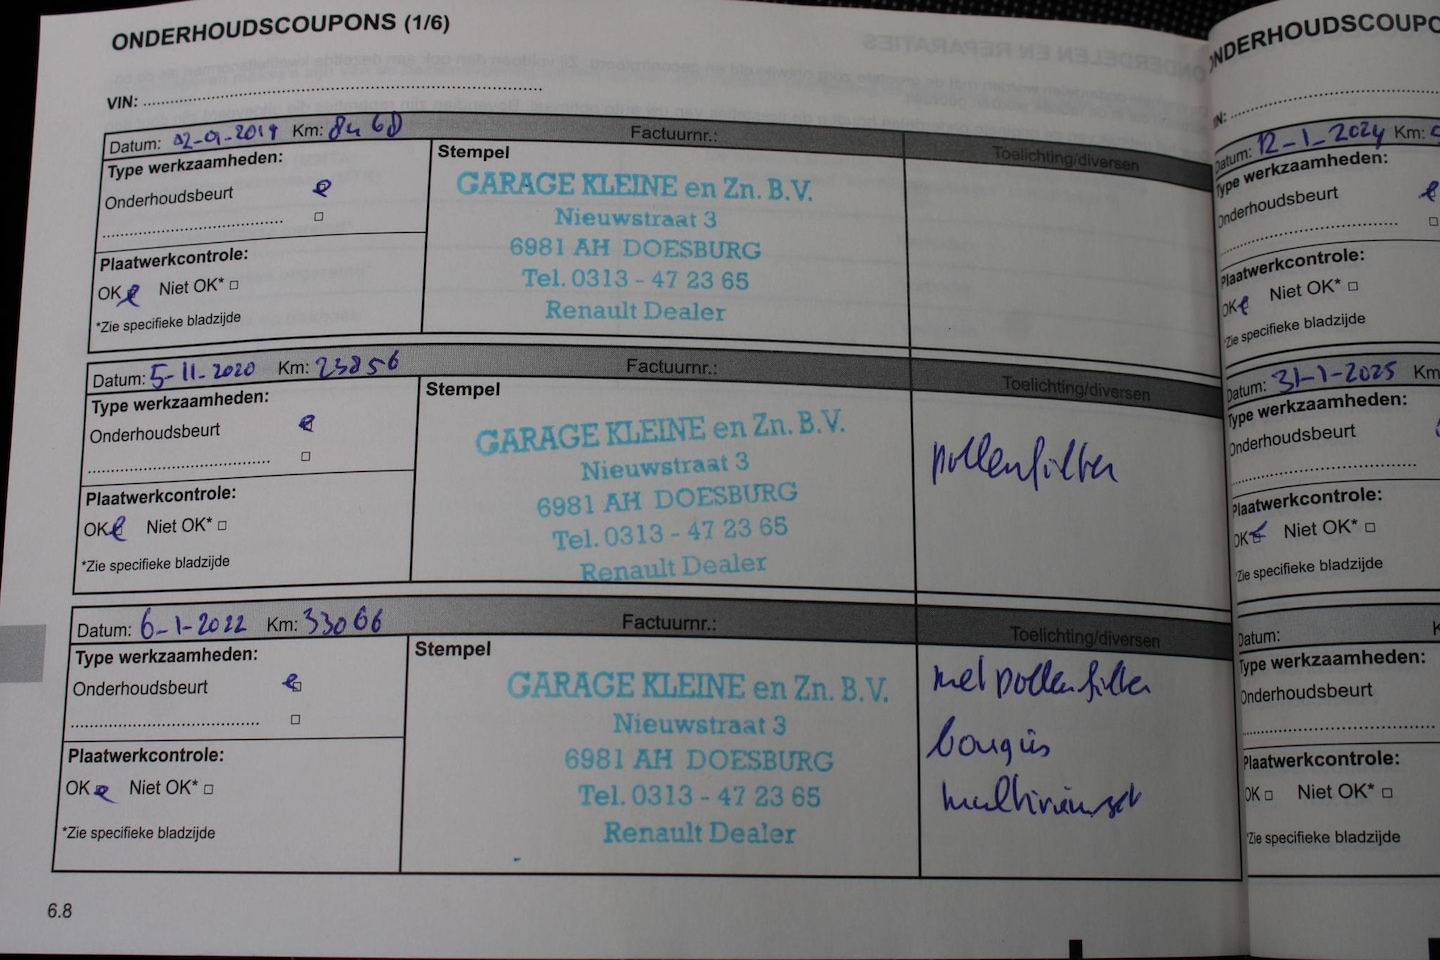 ONDERHOUDSCOUPONS (1/6)
VIN:
Datum: 02-09-2019 Km: 8468 Factuurnr.: Toelichting/diversen
Type werkzaamheden: Stempel
Onderhoudsbeurt
Plaatwerkcontrole:
OK Niet OK*
*Zie specifieke bladzijde
GARAGE KLEINE en Zn. B.V.
Nieuwstraat 3
6981 AH DOESBURG
Tel. 0313 - 47 23 65
Renault Dealer
Datum: 5-11-2020 Km: 23856 Factuurnr.: Toelichting/diversen
Type werkzaamheden: Stempel
Onderhoudsbeurt
Plaatwerkcontrole:
OK Niet OK*
*Zie specifieke bladzijde
GARAGE KLEINE en Zn. B.V.
Nieuwstraat 3
6981 AH DOESBURG
Tel. 0313 - 47 23 65
Renault Dealer
pollenfilter
Datum: 6-1-2022 Km: 33066 Factuurnr.: Toelichting/diversen
Type werkzaamheden: Stempel
Onderhoudsbeurt
Plaatwerkcontrole:
OK Niet OK*
*Zie specifieke bladzijde
GARAGE KLEINE en Zn. B.V.
Nieuwstraat 3
6981 AH DOESBURG
Tel. 0313 - 47 23 65
Renault Dealer
met pollenfilter
bougies
multiriemset
6.8
NDERHOUDSCOUPO
Datum: 12-1-2024 Km:
Type werkzaamheden:
Onderhoudsbeurt
Plaatwerkcontrole:
OK Niet OK*
*Zie specifieke bladzijde
Datum: 31-1-2025 Km
Type werkzaamheden:
Onderhoudsbeurt
Plaatwerkcontrole:
OK Niet OK*
*Zie specifieke bladzijde
Datum:
Type werkzaamheden:
Onderhoudsbeurt
Plaatwerkcontrole:
OK Niet OK*
*Zie specifieke bladzijde